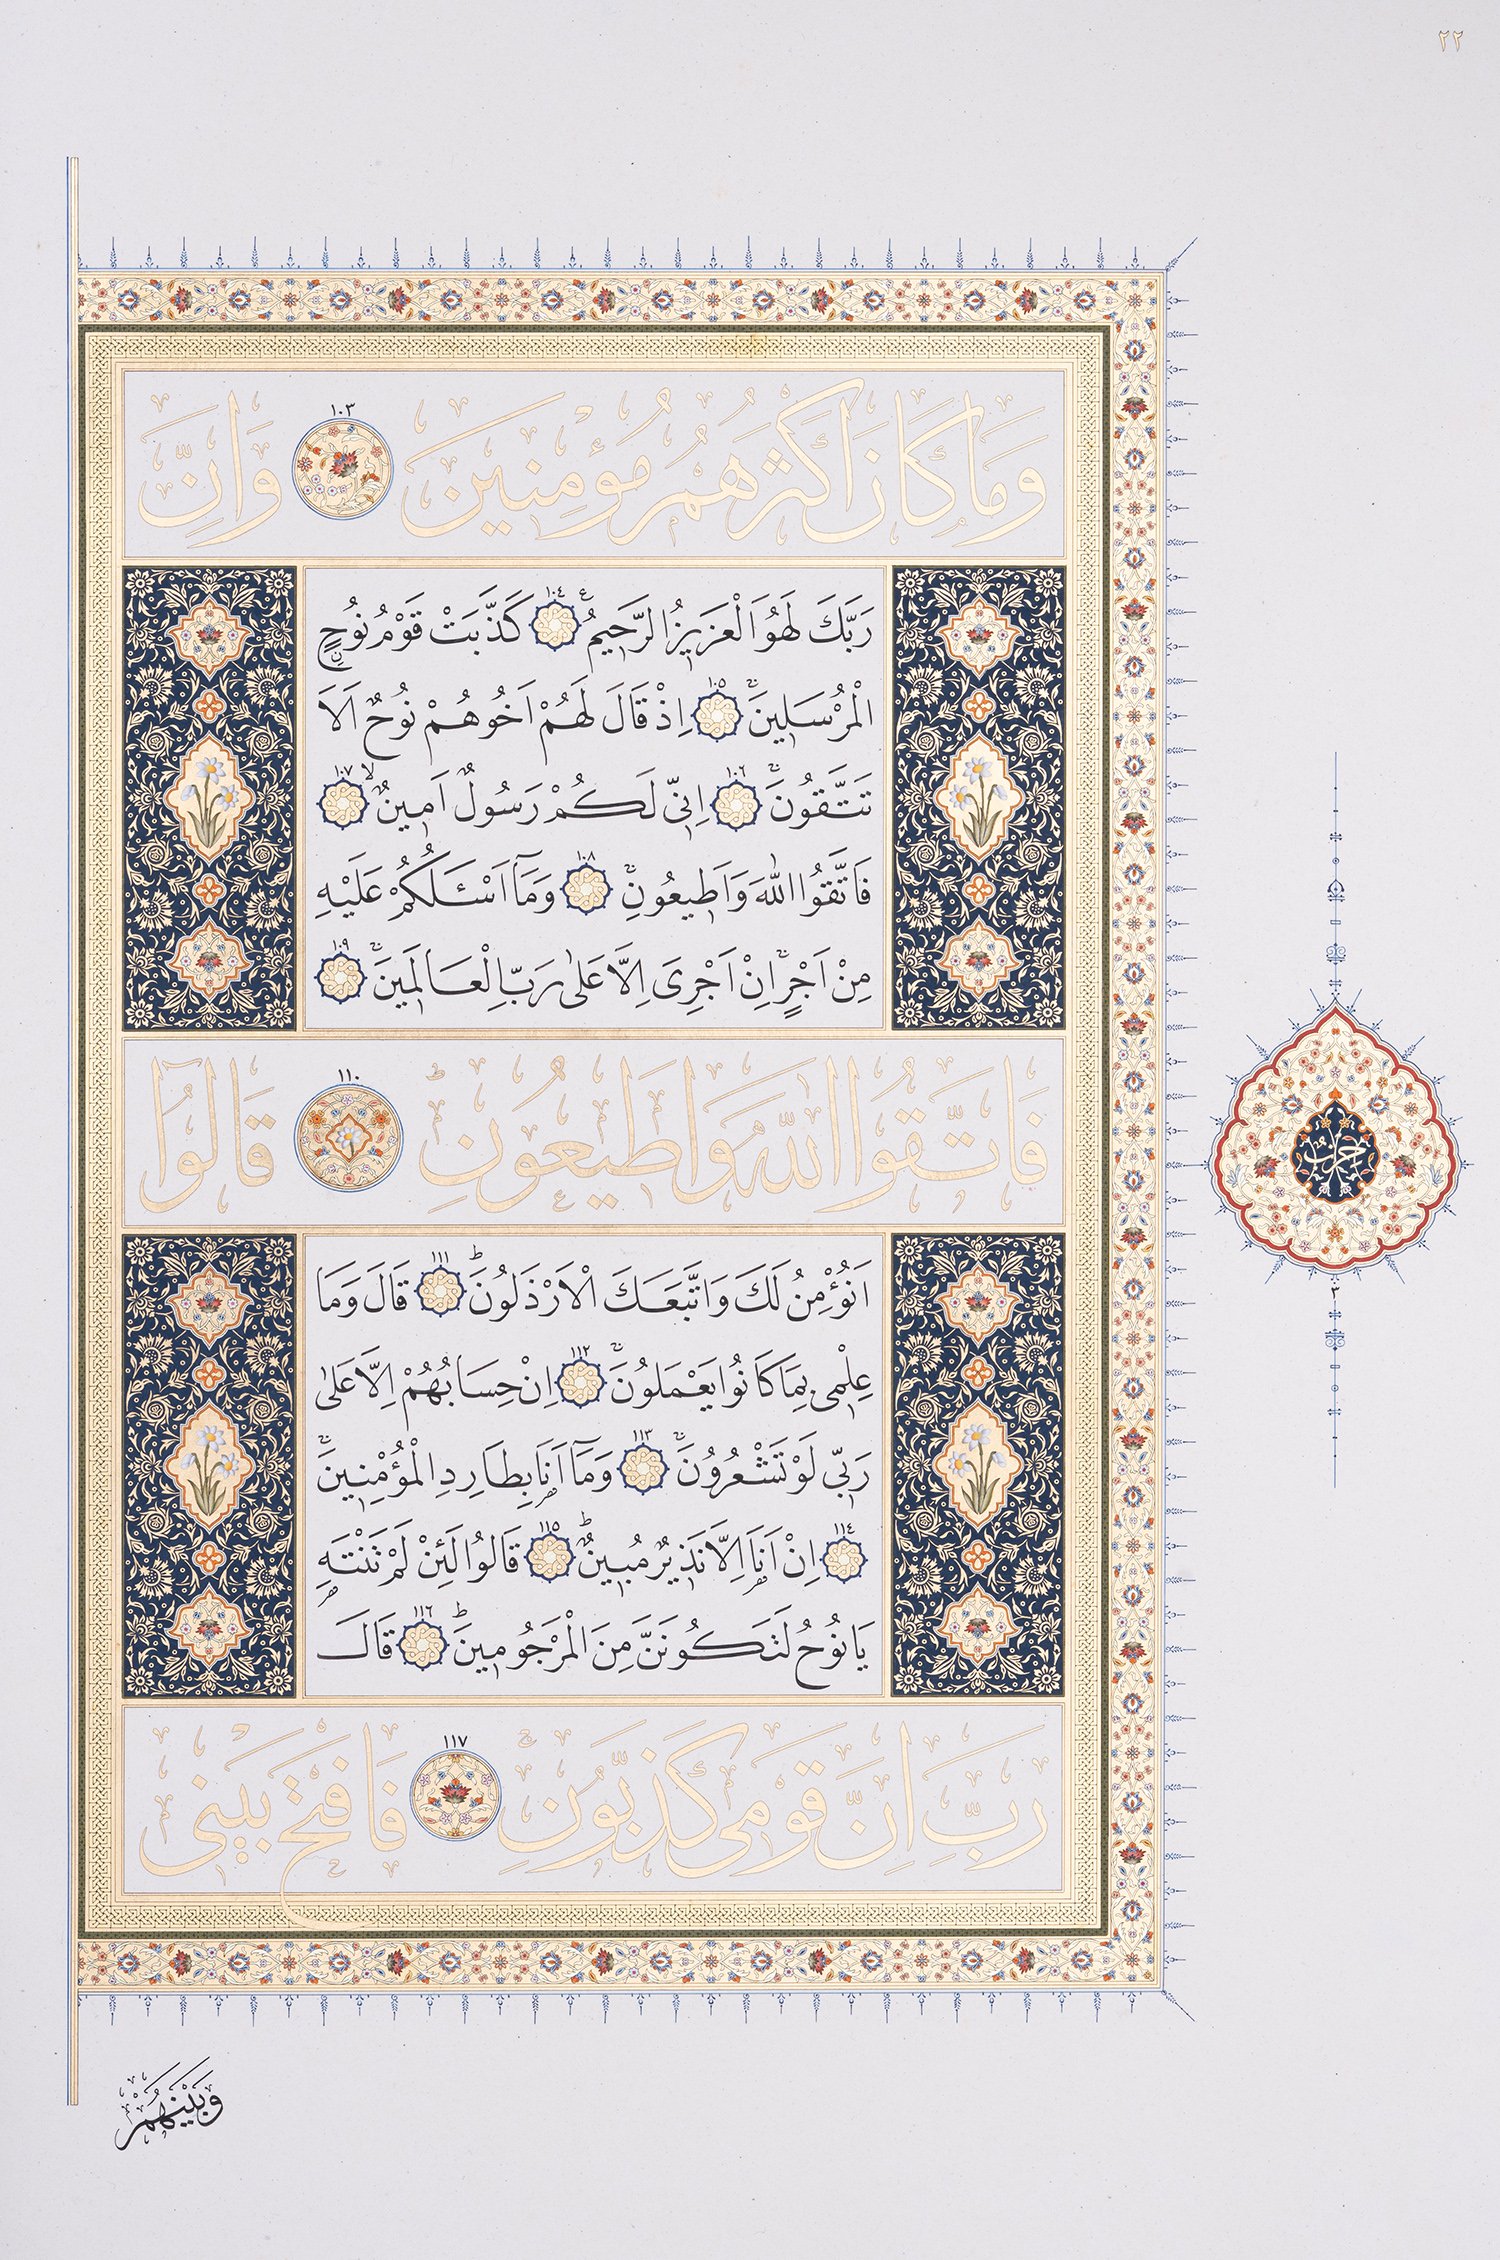 ٢٢
وَمَا كَانَ اَكْثَرُهُمْ مُؤْمِنِينَ ١٠٣ وَاِنَّ
رَبَّكَ لَهُوَ الْعَزِيزُ الرَّحِيمُ ع ١٠٤ كَذَّبَتْ قَوْمُ نُوحٍ
الْمُرْسَلِينَ ١٠٥ اِذْ قَالَ لَهُمْ اَخُوهُمْ نُوحٌ اَلَا
تَتَّقُونَ ١٠٦ اِنّ۪ي لَكُمْ رَسُولٌ اَمِينٌ لا ١٠٧
فَاتَّقُوا اللّٰهَ وَاَطِيعُونِ ١٠٨ وَمَٓا اَسْـَٔلُكُمْ عَلَيْهِ
مِنْ اَجْرٍ اِنْ اَجْرِيَ اِلَّا عَلٰى رَبِّ الْعَالَمِينَ ١٠٩
فَاتَّقُوا اللّٰهَ وَاَطِيعُونِ ط ١١٠ قَالُٓوا
اَنُؤْمِنُ لَكَ وَاتَّبَعَكَ الْاَرْذَلُونَ ط ١١١ قَالَ وَمَا
عِلْمِي بِمَا كَانُوا يَعْمَلُونَ ١١٢ اِنْ حِسَابُهُمْ اِلَّا عَلٰى
رَبِّي لَوْ تَشْعُرُونَ ١١٣ وَمَٓا اَنَا۬ بِطَارِدِ الْمُؤْمِنِينَ
١١٤ اِنْ اَنَا۬ اِلَّا نَذِيرٌ مُبِينٌ ط ١١٥ قَالُوا لَئِنْ لَمْ تَنْتَهِ
يَا نُوحُ لَتَكُونَنَّ مِنَ الْمَرْجُومِينَ ط ١١٦ قَالَ
رَبِّ اِنَّ قَوْمِي كَذَّبُونِ ج ١١٧ فَافْتَحْ بَيْنِي
حزب
٣
وَبَيْنَهُمْ